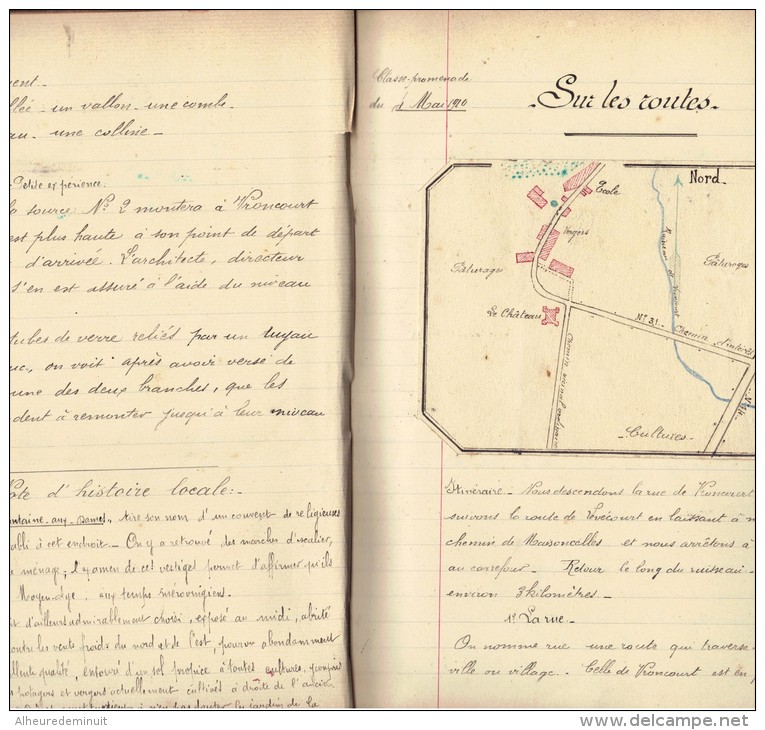 ent.
llée - un vallon - une combe.
au - une colline -
Petite expérience.
la source N° 2 montera à Vroncourt
est plus haute à son point de départ
d'arrivée. L'architecte, directeur
s'en est assuré à l'aide du niveau
tubes de verre reliés par un tuyau
uc, on voit après avoir versé de
une des deux branches, que les
dent à remonter jusqu'à leur niveau
Note d'histoire locale:-
ontaine-aux-Dames, tire son nom d'un couvent de religieuses
abli à cet endroit - On y a retrouvé des marches d'escalier,
e ménage; l'examen de ces vestiges permet d'affirmer qu'ils
Moyen-âge aux temps mérovingiens.
st d'ailleurs admirablement choisi, exposé au midi, abrité
ontre les vents froids du nord et de l'est, pourvu abondamment
ellente qualité, entouré d'un sol propice à toutes cultures
potagers et vergers actuellement cultivés à droite de l'ancien
n'en pas douter le jardin de la
Classe-promenade
du 4 Mai 1910
Sur les routes.
Nord
Ecole
Vergers
Pâturages
Pâturages
Le Château
N° 31.
Chemin d'intérêt
Chemin vicinal ordinaire
Ruisseau de Vroncourt
N° 14
Cultures
Itinéraire - Nous descendons la rue de Vroncourt
suivons la route de Levécourt en laissant à n
chemin de Maisoncelles et nous arrêtons à
au carrefour. Retour le long du ruisseau.
environ 3 kilomètres.
1° La rue -
On nomme rue une route qui traverse
ville ou village. Celle de Vroncourt est en
Alheuredeminuit
delcampe.net